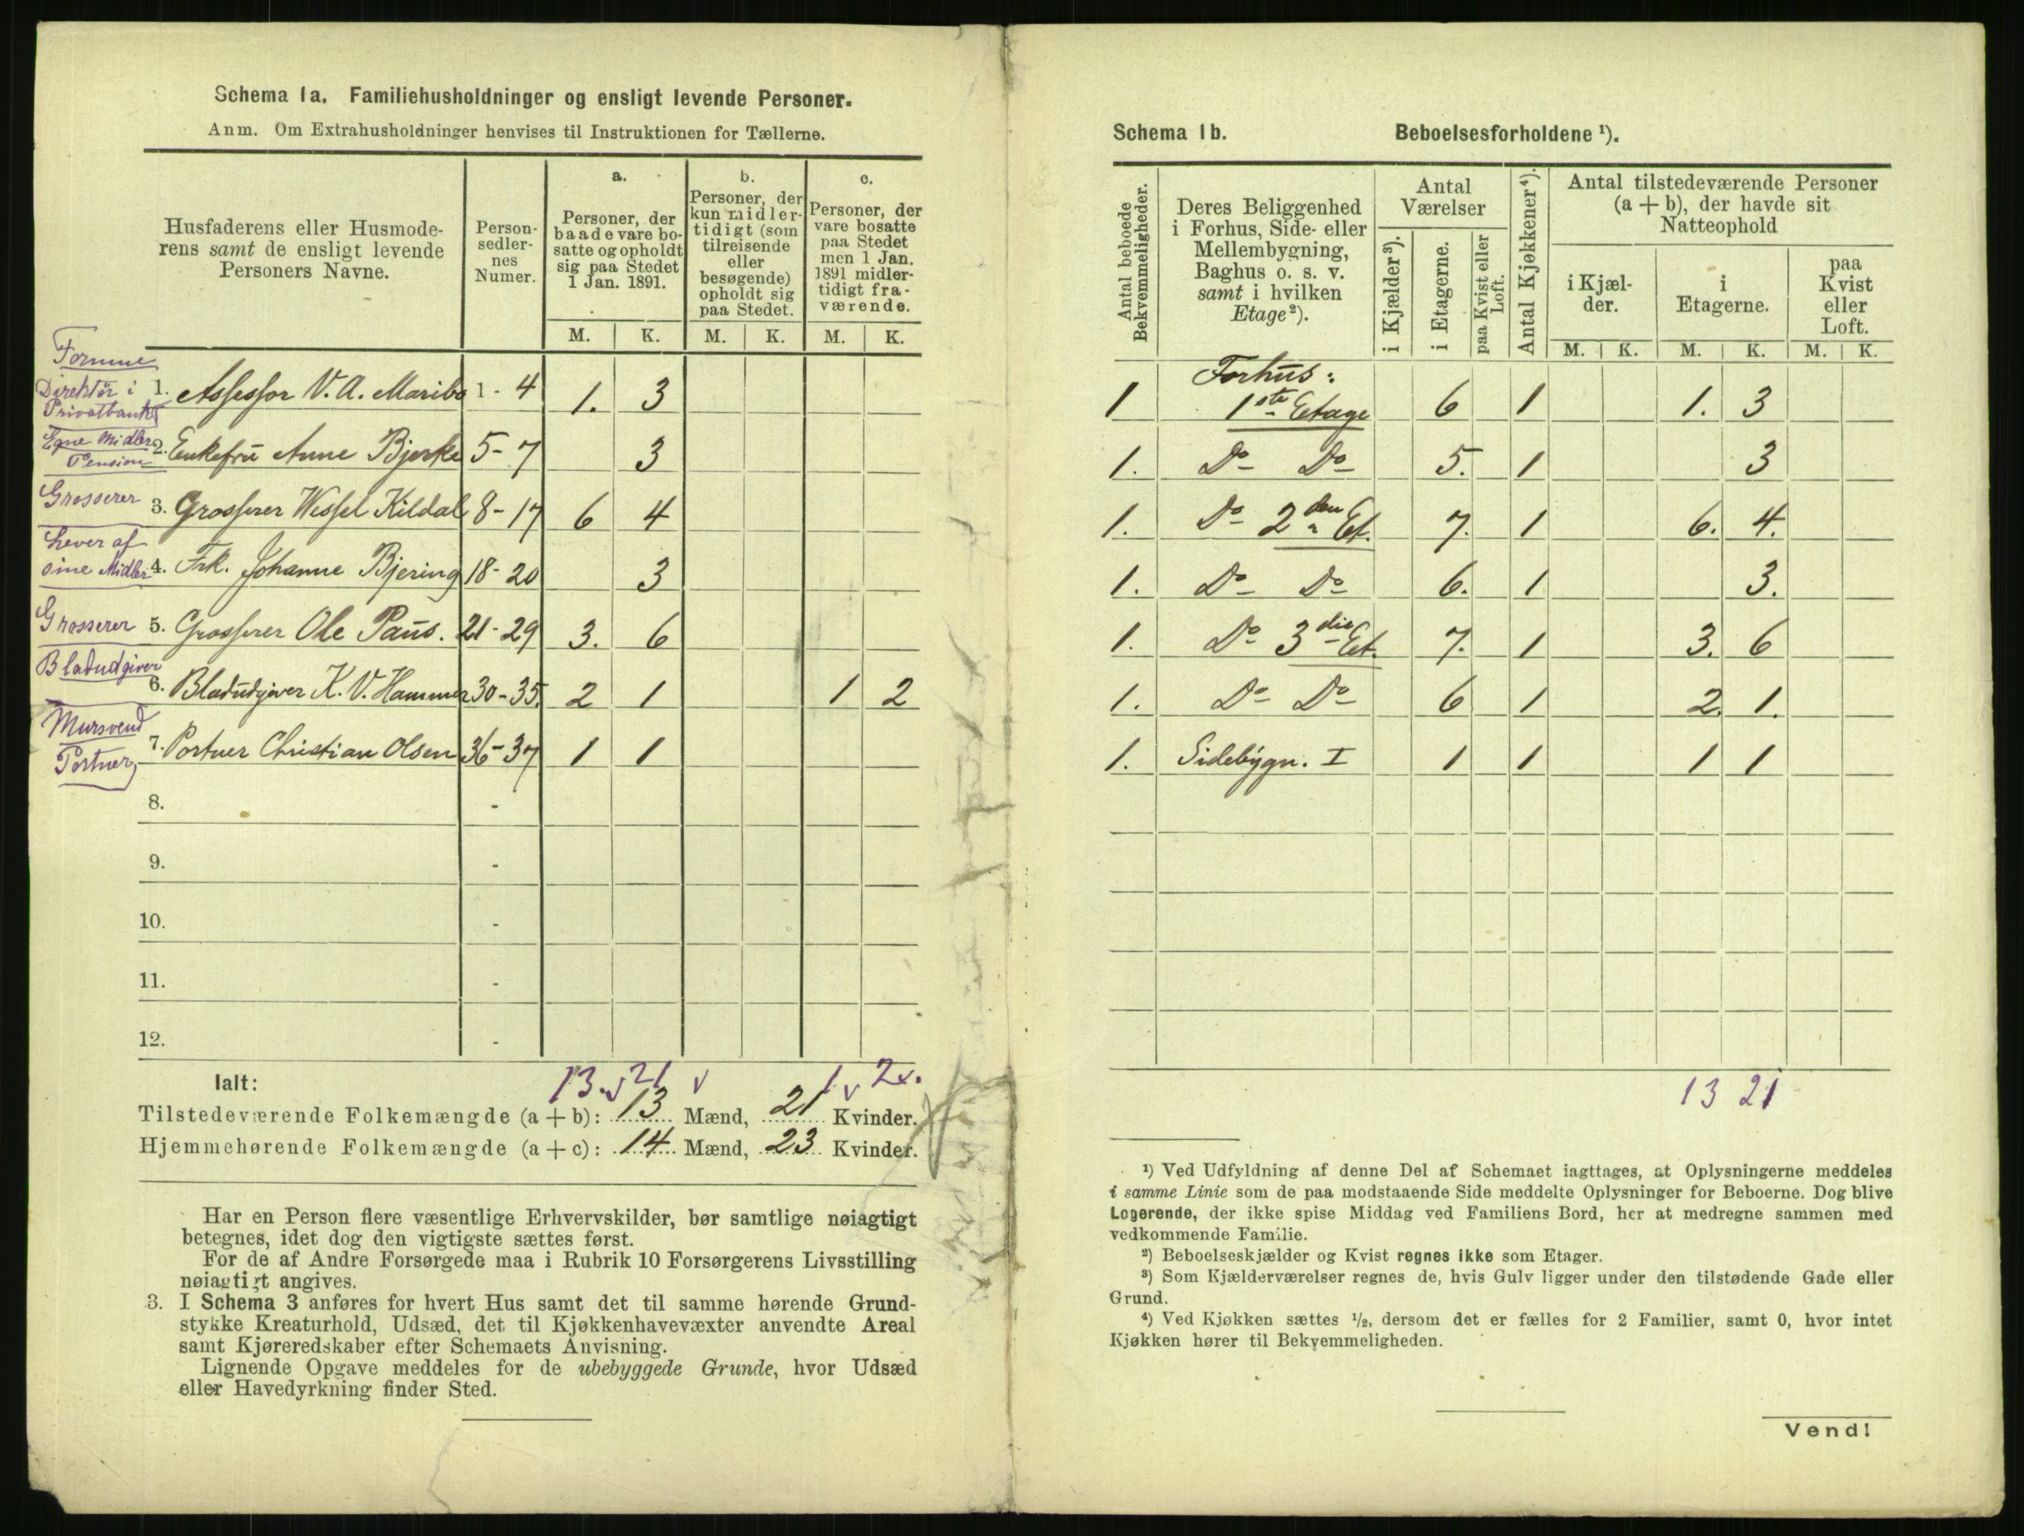 Schema 1a. Familiehusholdninger og ensligt levende Personer.
Anm. Om Extrahusholdninger henvises til Instruktionen for Tællerne.
Husfaderens eller Husmode-
rens samt de ensligt levende
Personers Navne.
Person-
sedler-
nes
Numer.
a.
Personer, der
baade vare bo-
satte og opholdt
sig paa Stedet
1 Jan. 1891.
b.
Personer, der
kun midler-
tidigt (som
tilreisende
eller
besøgende)
opholdt sig
paa Stedet.
c.
Personer, der
vare bosatte
paa Stedet
men 1 Jan.
1891 midler-
tidigt fra-
værende.
M. K. M. K. M. K.
Direktör i
Privatbank
1. Assessor V. A. Maribo 1 - 4 1. 3
Egne Midler
Pension
2. Enkefru Anne Bjerke 5 - 7 3
Grosserer
3. Grosserer Wessel Kildal 8 - 17 6 4
Lever af
sine Midler
4. Frk. Johanne Bjering 18 - 20 3
Grosserer
5. Grosserer Ole Paus. 21 - 29 3. 6
Bladudgiver
6. Bladudgiver K. V. Hammer 30 - 35. 2 1 1 2
Mursvend
Portner
7. Portner Christian Olsen 36 - 37 1 1
8. -
9. -
10. -
11. -
12. -
13. v 21 v 1 v 2 v.
Ialt:
Tilstedeværende Folkemængde (a + b): 13 Mænd, 21 Kvinder.
Hjemmehørende Folkemængde (a + c): 14 Mænd, 23 Kvinder.
Har en Person flere væsentlige Erhvervskilder, bør samtlige nøiagtigt
betegnes, idet dog den vigtigste sættes først.
For de af Andre Forsørgede maa i Rubrik 10 Forsørgerens Livsstilling
nøiagtigt angives.
3. I Schema 3 anføres for hvert Hus samt det til samme hørende Grund-
stykke Kreaturhold, Udsæd, det til Kjøkkenhavevæxter anvendte Areal
samt Kjøreredskaber efter Schemaets Anvisning.
Lignende Opgave meddeles for de ubebyggede Grunde, hvor Udsæd
eller Havedyrkning finder Sted.
Schema 1b. Beboelsesforholdene ¹).
Antal beboede
Bekvemmeligheder.
Deres Beliggenhed
i Forhus, Side- eller
Mellembygning,
Baghus o. s. v.
samt i hvilken
Etage²).
Antal
Værelser
i Kjælder³).
i Etagerne.
paa Kvist eller
Loft.
Antal Kjøkkener⁴).
Antal tilstedeværende Personer
(a + b), der havde sit
Natteophold
i Kjæl-
der.
i
Etagerne.
paa
Kvist
eller
Loft.
M. K. M. K. M. K.
Forhus:
1 1ste Etage 6 1 1. 3
1. Do Do 5. 1 3
1. Do 2den Et. 7. 1 6. 4.
1. Do Do 6. 1 3.
1. Do 3die Et. 7. 1 3. 6
1. Do Do 6 1 2. 1.
1. Sidebygn. I 1 1 1 1
13 21
¹) Ved Udfyldning af denne Del af Schemaet iagttages, at Oplysningerne meddeles
i samme Linie som de paa modstaaende Side meddelte Oplysninger for Beboerne. Dog blive
Logerende, der ikke spise Middag ved Familiens Bord, her at medregne sammen med
vedkommende Familie.
²) Beboelseskjælder og Kvist regnes ikke som Etager.
³) Som Kjælderværelser regnes de, hvis Gulv ligger under den tilstødende Gade eller
Grund.
⁴) Ved Kjøkken sættes ½, dersom det er fælles for 2 Familier, samt 0, hvor intet
Kjøkken hører til Bekvemmeligheden.
Vend!